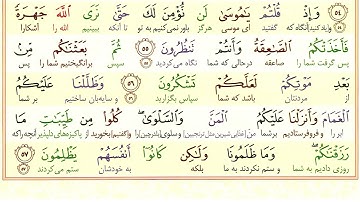 وَإِذْ قُلْتُمْ يَٰمُوسَىٰ لَن نُّؤْمِنَ لَكَ حَتَّىٰ نَرَى ٱللَّهَ جَهْرَةً
و یاد کنید آنگاه که گفتید ای موسی هرگز باور نمی کنیم به تو تا آنکه ببینیم الله را آشکارا
فَأَخَذَتْكُمُ ٱلصَّٰعِقَةُ وَأَنتُمْ تَنظُرُونَ ۵۵ ثُمَّ بَعَثْنَٰكُم مِّنۢ
پس گرفت شما را صاعقه درحالی که شما نگاه می کردید سپس برانگیختیم شما را پس
بَعْدِ مَوْتِكُمْ لَعَلَّكُمْ تَشْكُرُونَ ۵۶ وَظَلَّلْنَا عَلَيْكُمُ
از مردنتان باشد که شما سپاس بگزارید و سایه بان ساختیم بر شما
ٱلْغَمَامَ وَأَنزَلْنَا عَلَيْكُمُ ٱلْمَنَّ وَٱلسَّلْوَىٰ كُلُوا۟ مِن طَيِّبَٰتِ مَا
ابر را و فروفرستادیم برشما
رَزَقْنَٰكُمْ وَمَا ظَلَمُونَا وَلَٰكِن كَانُوٓا۟ أَنفُسَهُمْ يَظْلِمُونَ ۵۷
روزی دادیم به شما و ستم نکردند به ما بلکه به خودشان ستم می کردند